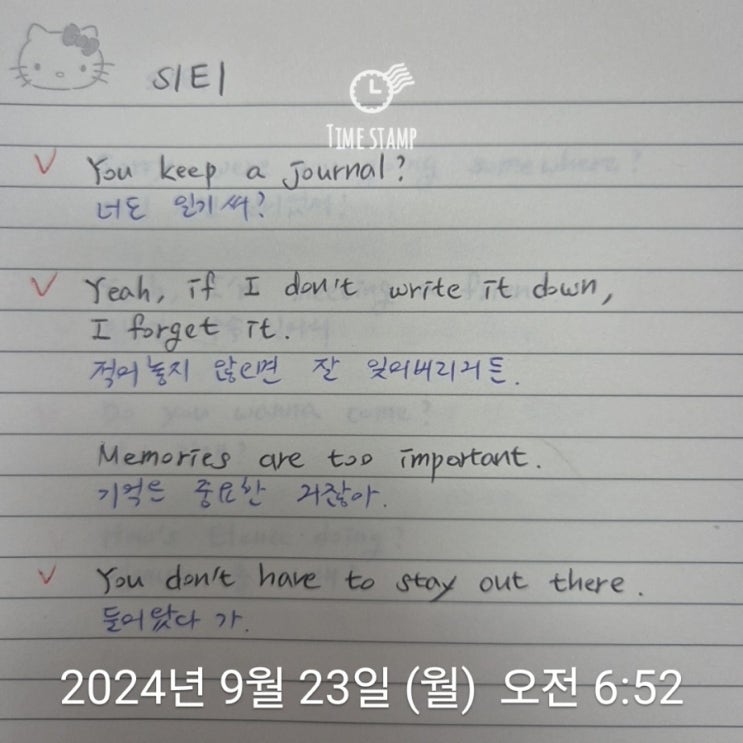 S1E1
TIME STAMP
You keep a journal?
너도 일기 써?
Yeah, if I don't write it down,
I forget it.
적어놓지 않으면 잘 잊어버리거든.
Memories are too important.
기억은 중요한 거잖아.
You don't have to stay out there.
들어왔다 가.
2024년 9월 23일 (월) 오전 6:52